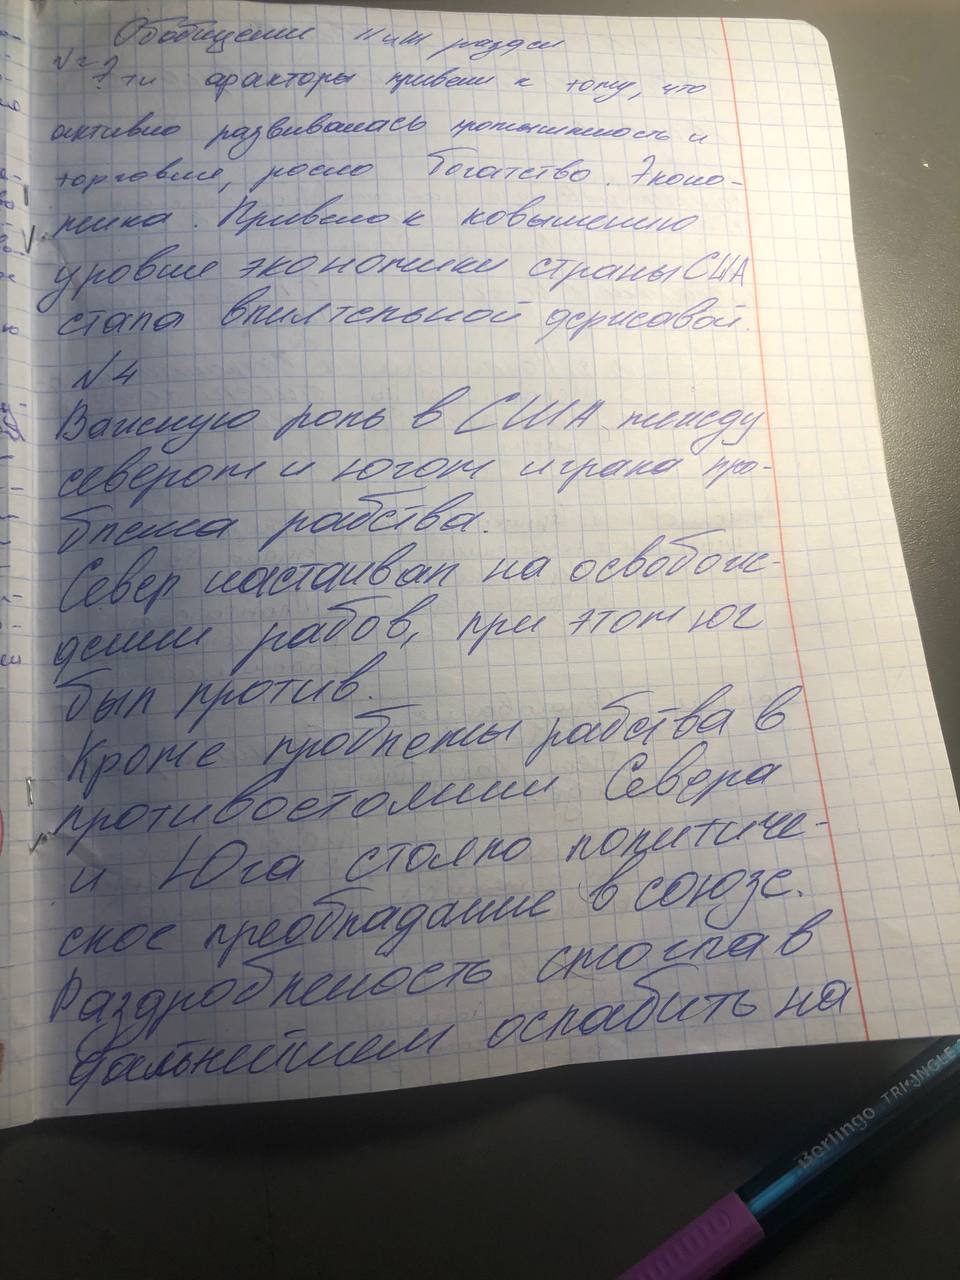 Обобщение II и III раздел
№2
Эти факторы привели к тому, что
активно развивалась промышленость и
торговля, росло богатство. Эконо-
мика. Привело к повышению
уровня экономики страны США
стала влиятельной державой.
№4
Важную роль в США между
севером и югом играла про-
блема рабства.
Север настаивал на освобож-
дении рабов, при этом юг
был против.
Кроме проблемы рабства в
противостоянии Севера
и Юга стояло политиче-
ское преобладание в союзе.
Раздробленость смогла в
дальнейшем ослабить на
Berlingo TRIANGLE